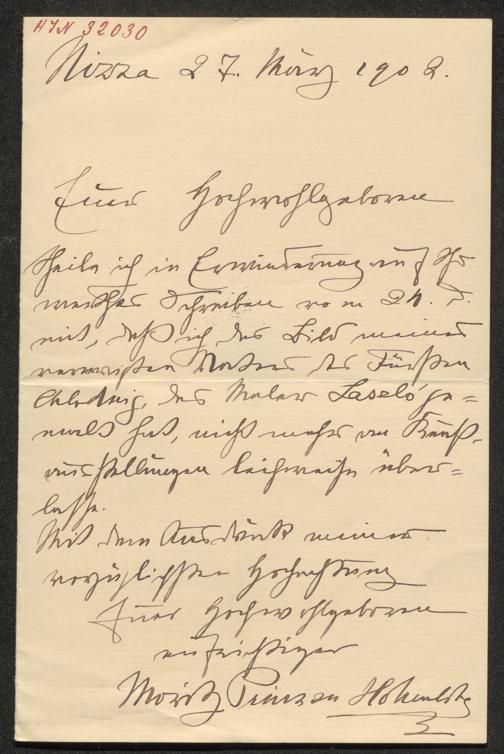 HIN 32030
Nizza 27. März 1902.
Euer Hochwohlgeboren
theile ich in Erwiderung auf Ihr
werthes Schreiben vom 24. d.
mit, daß ich das Bild meines
verewigten Vaters des Fürsten
Chlodwig, das Maler Laszló ge=
malt hat, nicht mehr an Kunst-
ausstellungen leihweise über=
lasse.
Mit dem Ausdruck meiner
vorzüglichsten Hochachtung
Euer Hochwohlgeboren
aufrichtiger
Moritz Prinz zu Hohenlohe